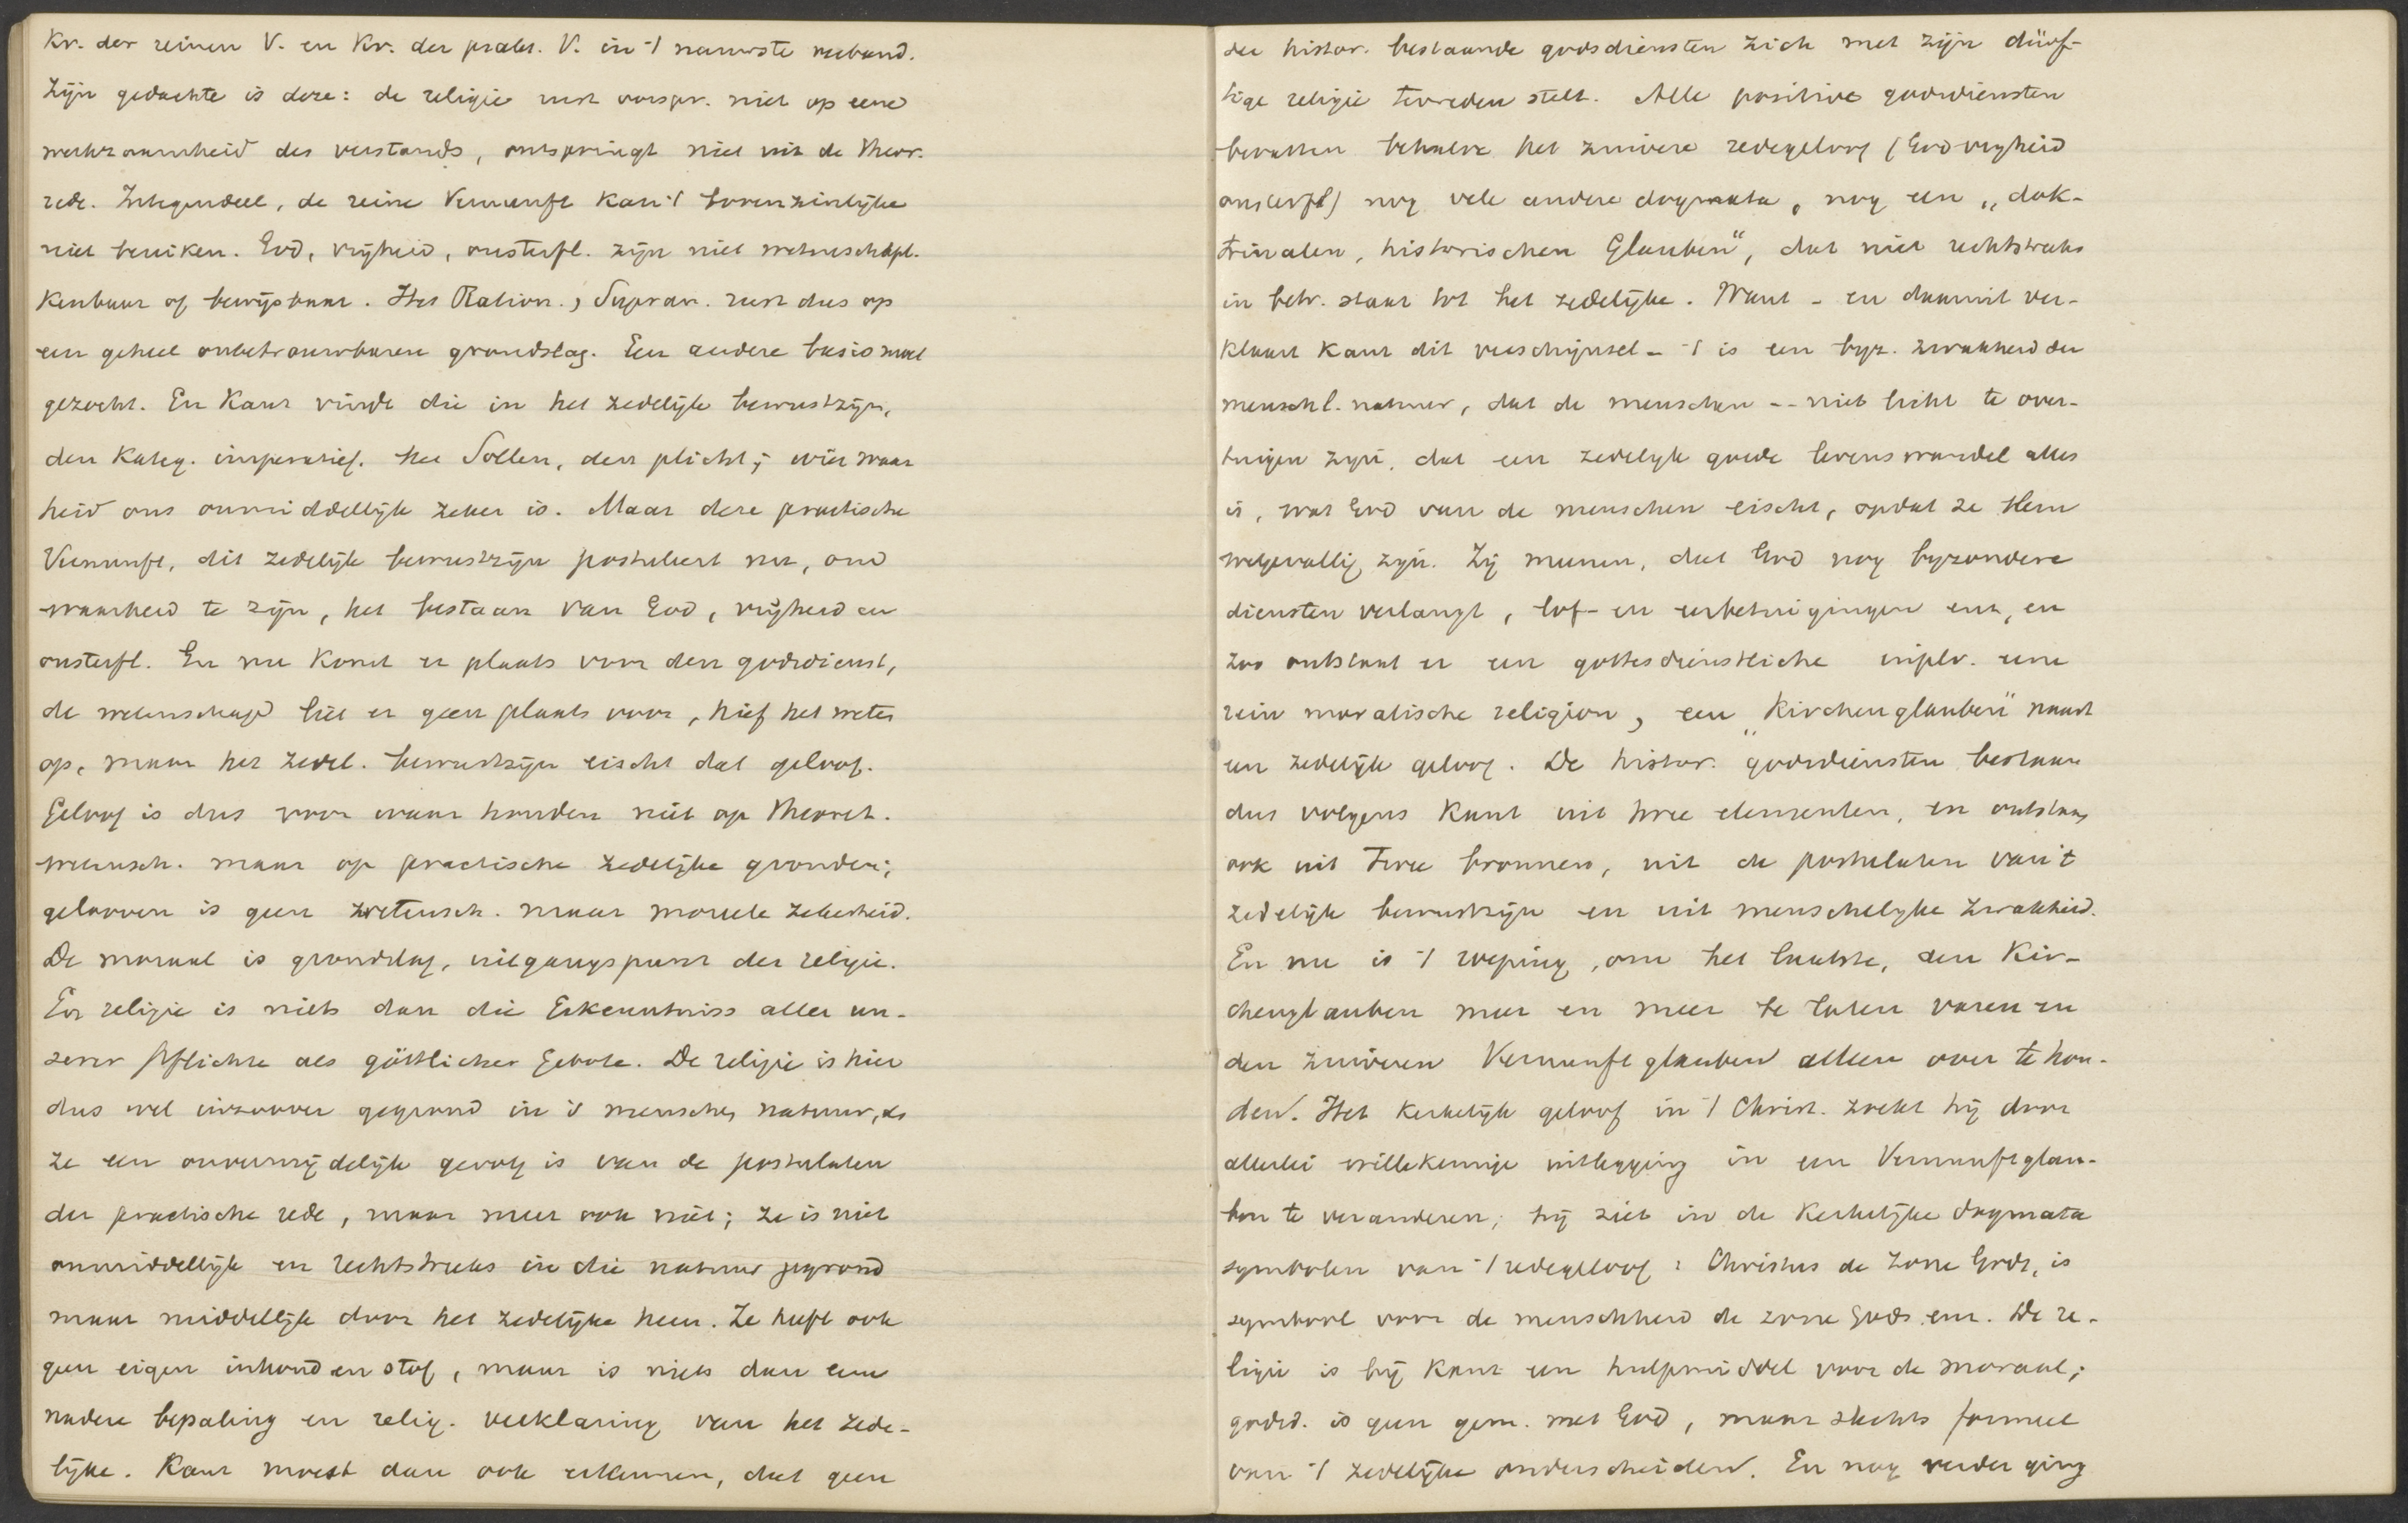 Kr. der reinen V. en Kr. der prakt. V. in 't nauwste verband.
Zijn gedachte is deze: de religie rust oorspr. niet op eene
werkzaamheid des verstands, ontspringt niet uit de theor.
rede. Integendeel, de reine Vernunft kan 't bovenzinlijke
niet bereiken. God, vrijheid, onsterfl. zijn niet wetenschapl.
kenbaar of bewijsbaar. Het Ration., Supran. rust dus op
een geheel onbetrouwbaren grondslag. Een andere basis moet
gezocht. En Kant vindt die in het zedelijk bewustzijn,
den kateg. imperatief. het Sollen, den plicht; wier waar
heid ons onmiddellijk zeker is. Maar deze practische
Vernunft, dit zedelijk bewustzijn postuleert nu, om
waarheid te zijn, het bestaan van God, vrijheid en
onsterfl. En nu komt er plaats voor den godsdienst,
de wetenschap liet er geen plaats voor, hief het weten
op, maar het zedel. bewustzijn eischt dat geloof.
Geloof is dus voor waar houden niet op theoret.
wetensch. maar op practische zedelijke gronden;
gelooven is geen wetensch. maar moreele zekerheid.
De moraal is grondslag, uitgangspunt der religie.
En religie is niets dan die Erkenntniss aller un-
serer Pflichte als göttlicher Gebote. De religie is hier
dus wel inzoover gegrond in 's menschen natuur, als
ze een onvermijdelijk gevolg is van de postulaten
der practische rede, maar meer ook niet; ze is niet
onmiddellijk en rechtstreeks in die natuur gegrond
maar middellijk door het zedelijke heen. Ze heeft ook
geen eigen inhoud en stof, maar is niets dan eene
nadere bepaling en relig. verklaring van het zede-
lijke. Kant moest dan ook erkennen, dat geen
der histor. bestaande godsdiensten zich met zijn dürf-
tige religie tevreden stelt. Alle positive godsdiensten
bevatten behalve het zuivere redegeloof (God vryheid
onsterfl) nog vele andere dogmata, nog een „dok-
trinalen, historischen Glauben", dat niet rechtstreeks
in betr. staat tot het zedelijke. Want - en daaruit ver-
klaart Kant dit verschijnsel - 't is een byz. zwakheid der
menschl. natuur, dat de menschen -- niet licht te over-
tuigen zyn, dat een zedelyk goede levenswandel alles
is, wat God van de menschen eischt, opdat ze Hem
welgevallig zyn. Zij meenen, dat God nog byzondere
diensten verlangt, lof- en eerbetuigingen enz, en
zoo ontstaat er een gottesdienstliche inplv. eene
rein moralische religion, een „Kirchenglauben" naast
een zedelijk geloof. De histor. godsdiensten bestaan
dus volgens Kant uit twee elementen, en ontstaan
ook uit twee bronnen, uit de postulaten van 't
zedelijk bewustzijn en uit menschelyke zwakheid.
En nu is 't roeping, om het laatste, den Kir-
chenglauben meer en meer te laten varen en
den zuiveren Vernunftglauben alleen over te hou-
den. Het kerkelijk geloof in 't Christ. zoekt hij door
allerlei willekeurige uitlegging in een Vernunftglau-
ben te veranderen; hij ziet in de kerkelijke dogmata
symbolen van 't redegeloof: Christus de Zone Gods, is
symbool voor de menschheid de zone Gods enz. De re-
ligie is bij Kant een hulpmiddel voor de moraal;
godsd. is geen gem. met God, maar slechts formeel
van 't zedelijke onderscheiden. En nog verder ging